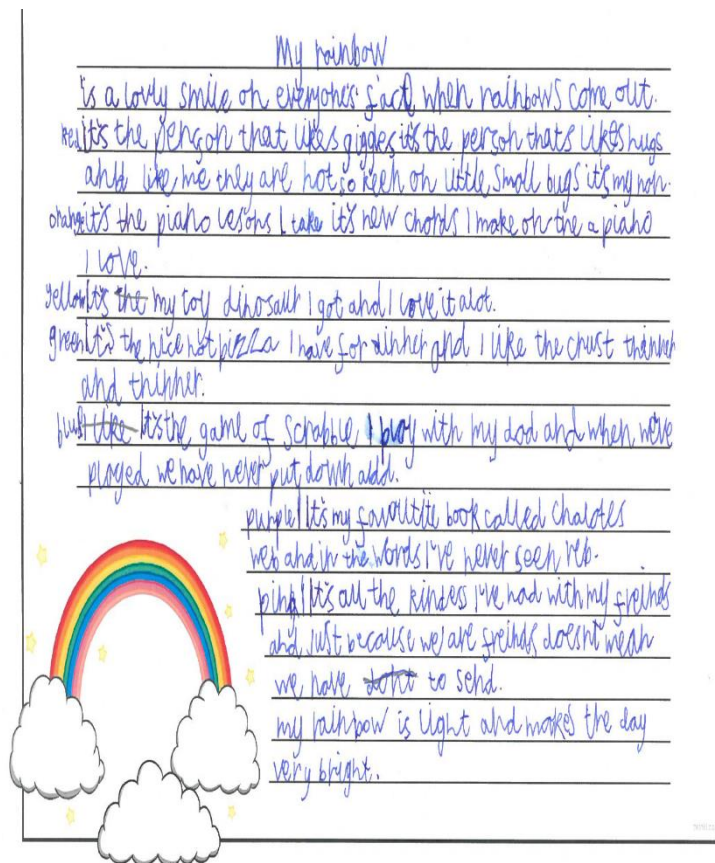 My rainbow
is a lovly smile on everyone's face when rainbows come out.
red It's the person that likes giggles it's the person thats likes hugs
and like me they are not so keen on little small bugs it's my non.
orange it's the piano lesons I take it's new chords I make on the a piano
I love.
yellow It's the my toy dinosaur I got and I love it alot.
green It's the nice hot pizza I have for dinner and I like the crust thinner
and thinner.
blue like It's the game of scrabble I play with my dad and when we've
played we have never put down add.
purple It's my favoutite book called Chalotes
web and in the words I've never seen reb.
pink It's all the kindess I've had with my freinds
and just because we are freinds doesn't mean
we have dont to send.
my rainbow is light and makes the day
very bright.